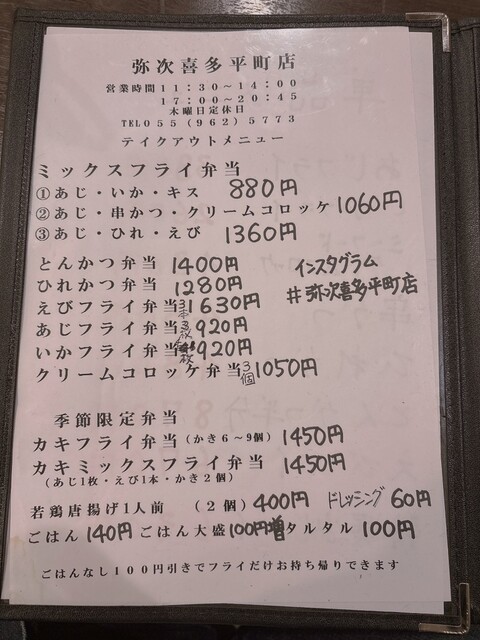 弥次喜多平町店
営業時間11:30～14:00
17:00～20:45
木曜日定休日
TEL055(962)5773
テイクアウトメニュー
ミックスフライ弁当
①あじ・いか・キス 880円
②あじ・串かつ・クリームコロッケ 1060円
③あじ・ひれ・えび 1360円
とんかつ弁当 1400円
ひれかつ弁当 1280円
えびフライ弁当 3本 1630円
あじフライ弁当 3枚 920円
いかフライ弁当 枚 920円
クリームコロッケ弁当 3個 1050円
インスタグラム
#弥次喜多平町店
季節限定弁当
カキフライ弁当(かき6～9個) 1450円
カキミックスフライ弁当 1450円
(あじ1枚・えび1本・かき2個)
若鶏唐揚げ1人前 (2個) 400円 ドレッシング 60円
ごはん 140円 ごはん大盛 100円増 タルタル 100円
ごはんなし100円引きでフライだけお持ち帰りできます